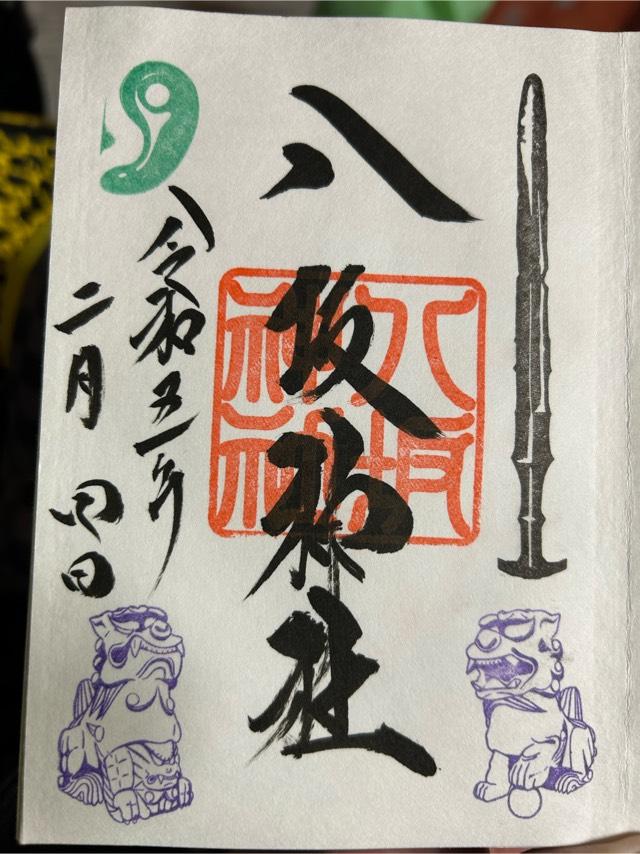 八坂神社
八坂神社
令和五年
二月四日